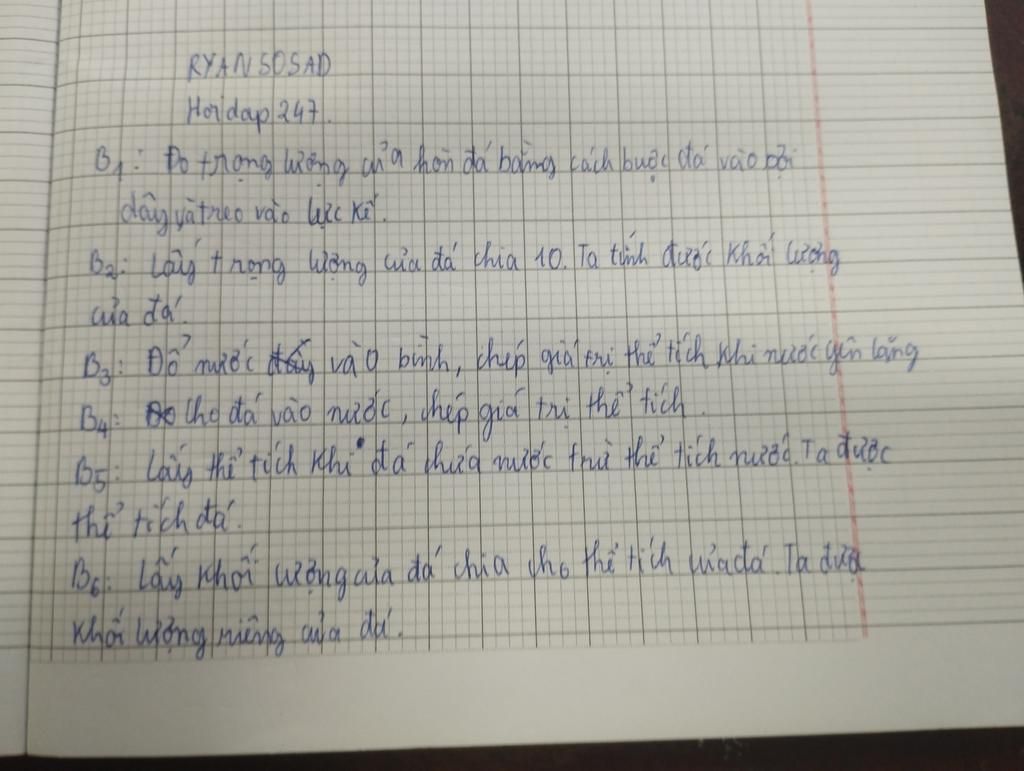 RYANSOSAD
Hoidap 247.
B1: Đo trọng lượng của hòn đá bằng cách buộc đá vào sợi
dây và treo vào lực kế.
B2: Lấy trọng lượng của đá chia 10. Ta tính được khối lượng
của đá.
B3: Đổ nước vào bình, chép giá trị thể tích khi nước yên lặng
B4: Cho đá vào nước, chép giá trị thể tích.
B5: Lấy thể tích khi đá chứa nước trừ thể tích nước. Ta được
thể tích đá.
B6: Lấy khối lượng của đá chia cho thể tích của đá. Ta được
khối lượng riêng của đá.